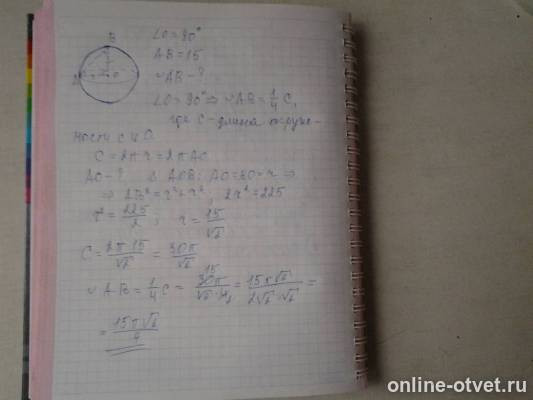 B
∠O = 90°
AB = 15
◡AB - ?
∠O = 90° ⇒ ◡AB = 1/4 C,
где C - длина окруж-
ности с ц. O.
C = 2πr = 2πAO
AO - ? △ AOB: AO = BO = r ⇒
⇒ AB² = r² + r²; 2r² = 225
r² = 225/2; r = 15/√2
C = 2π·15/√2 = 30π/√2
◡AB = 1/4 C = 30π/√2·4 = 15π√2/2√2·√2 =
= 15π√2/4
online-otvet.ru